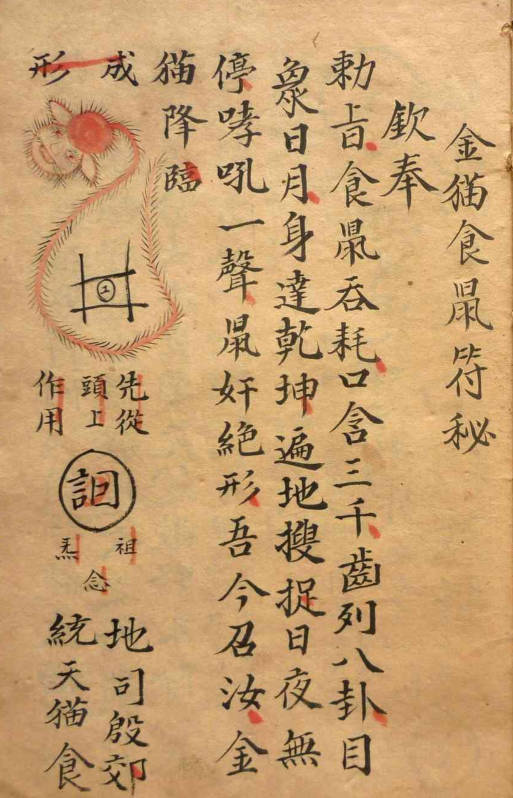 金猫食鼠符秘
欽奉
勅旨食鼠吞耗口含三千齒列八卦目
象日月身達乾坤遍地搜捉日夜無
停哮吼一聲鼠奸絶形吾今召汝金
猫降臨
成形
先從
頭上
作用
祖炁
念
地司殷郊
統天猫食